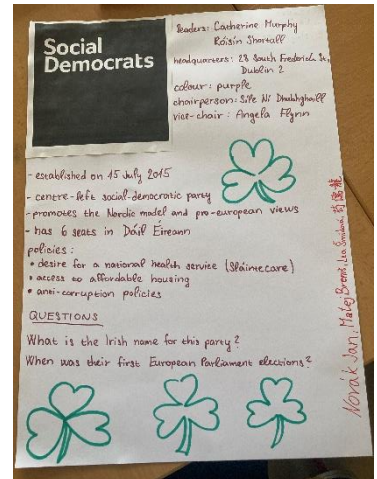 Social
Democrats
leaders: Catherine Murphy
Róisín Shortall
headquarters: 28 South Frederick St,
Dublin 2
colour: purple
chairperson: Síle Ní Dhubhghaill
vice-chair: Angela Flynn
- established on 15 July 2015
- centre-left social-democratic party
- promotes the Nordic model and pro-european views
- has 6 seats in Dáil Éireann
policies:
• desire for a national health service (Sláintecare)
• access to affordable housing
• anti-corruption policies
QUESTIONS
What is the Irish name for this party?
When was their first European Parliament elections?
Novák Jan, Matej Breně, Lea